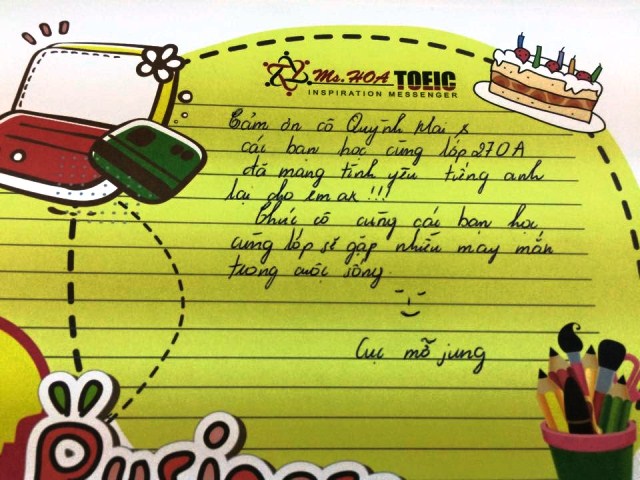 Ms. HOA TOEIC
INSPIRATION MESSENGER
Cảm ơn cô Quỳnh Mai &
các bạn học cùng lớp 270A
đã mang tình yêu tiếng anh
lại cho em ak !!!
Chúc cô cùng các bạn học
cùng lớp sẽ gặp nhiều may mắn
trong cuộc sống.
Cục mỡ jung